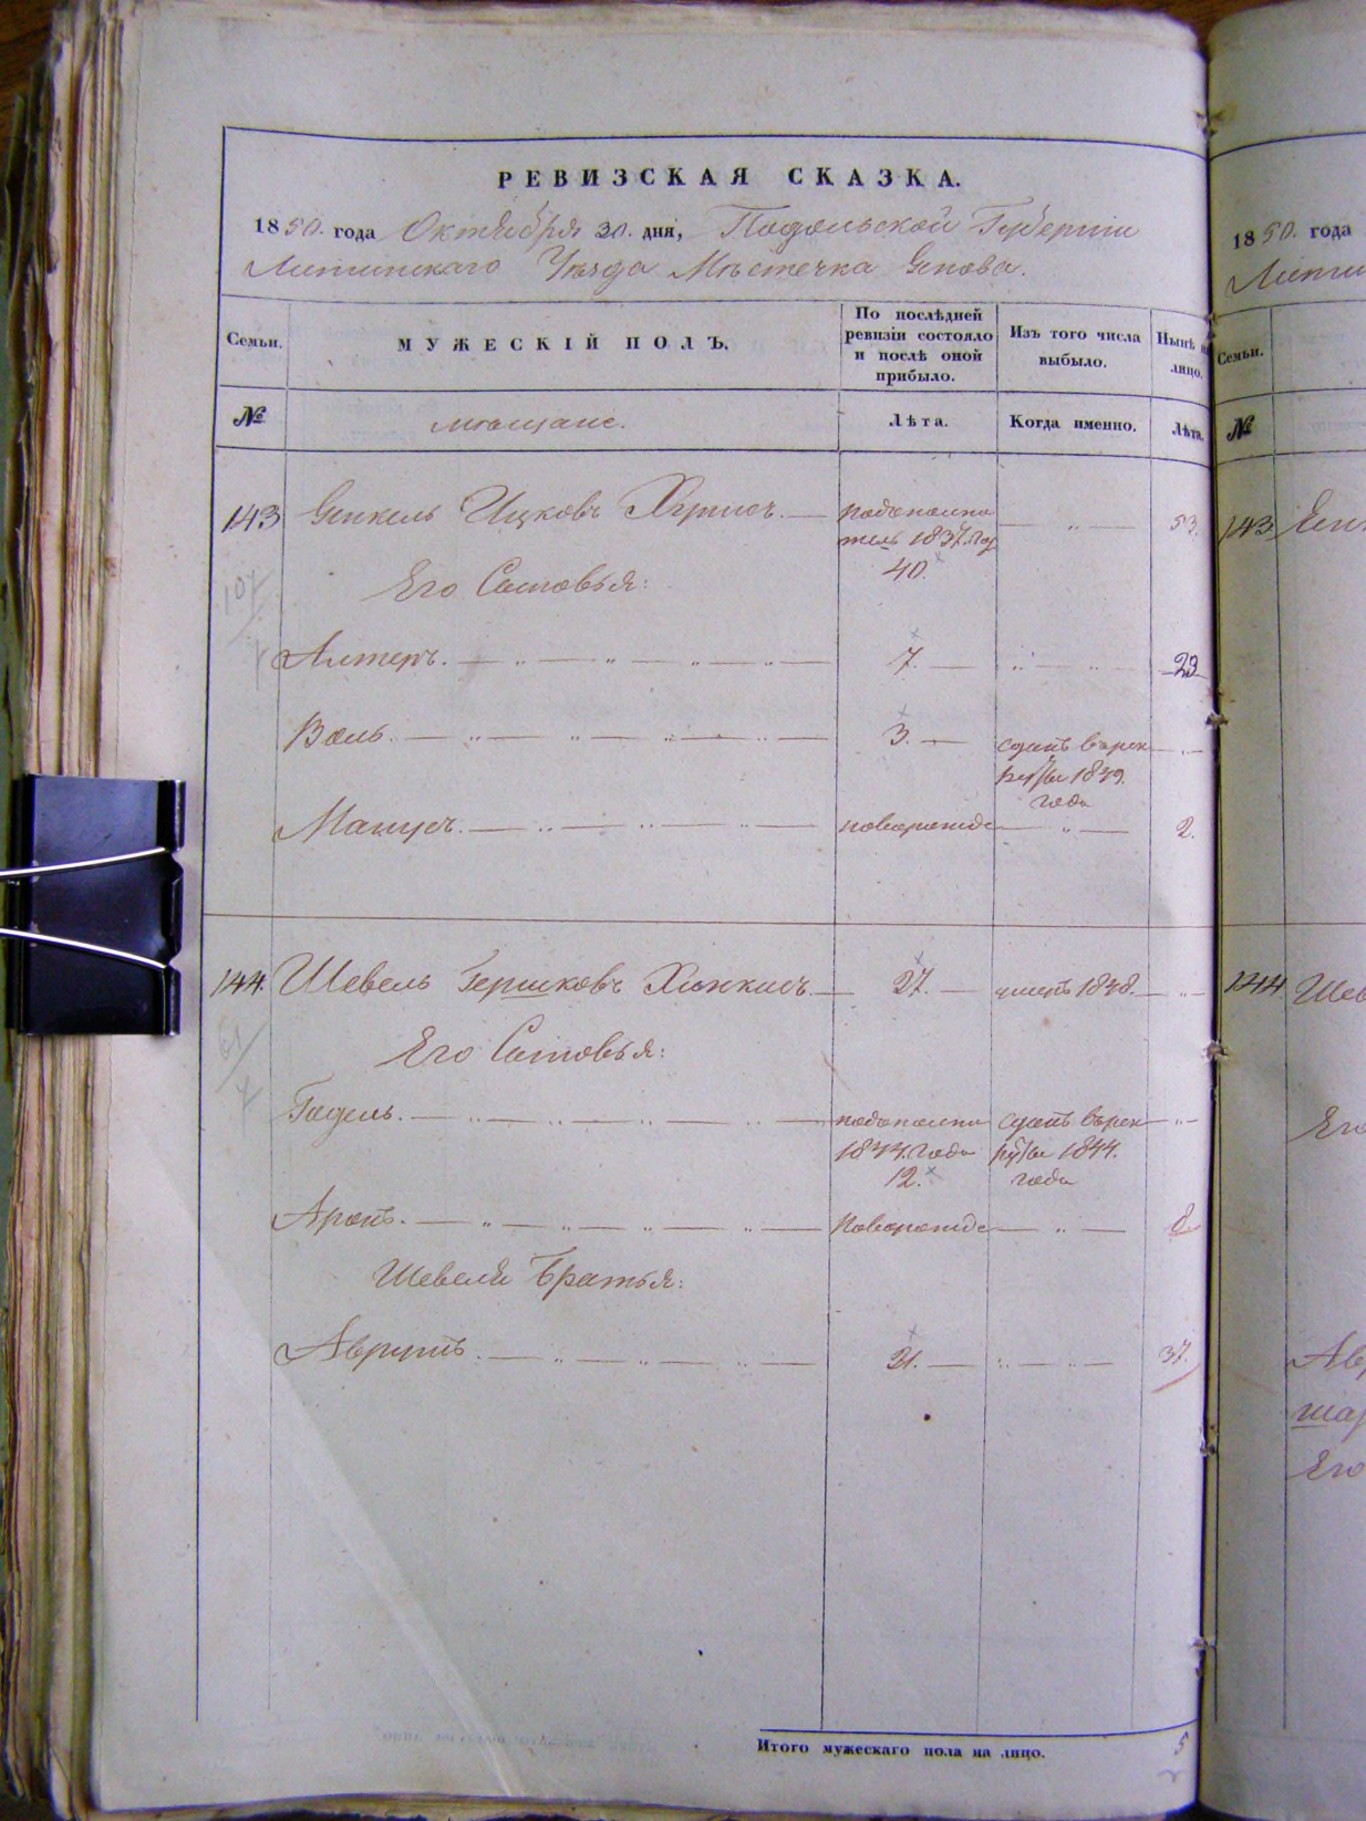 РЕВИЗСКАЯ СКАЗКА.
1850. года Октября 30. дня, Подольской Губерніи
Литинскаго Уѣзда Мѣстечка
Семьи.
МУЖЕСКІЙ ПОЛЪ.
По послѣдней ревизіи состояло и послѣ оной прибыло.
Изъ того числа выбыло.
Нынѣ на лицо.
№
мѣщане.
Лѣта.
Когда именно.
Лѣта.
143 Ицковъ 1837. 40. 53.
Его Сыновья:
Алтеръ. 7. 23
Воль. 3. сданъ въ рекруты 1849. года
Манусъ. новорожде 2.
144. Шевель Гершковъ 27. умеръ 1848.
Его Сыновья:
Годель. 1844. года 12. сданъ въ рекруты 1844. года
Аронъ. Новорожде 8
Шевеля Братья:
Аврумъ. 21. 37.
Итого мужескаго пола на лицо. 5
1850. года
Семьи.
№
143
144
Его
Его